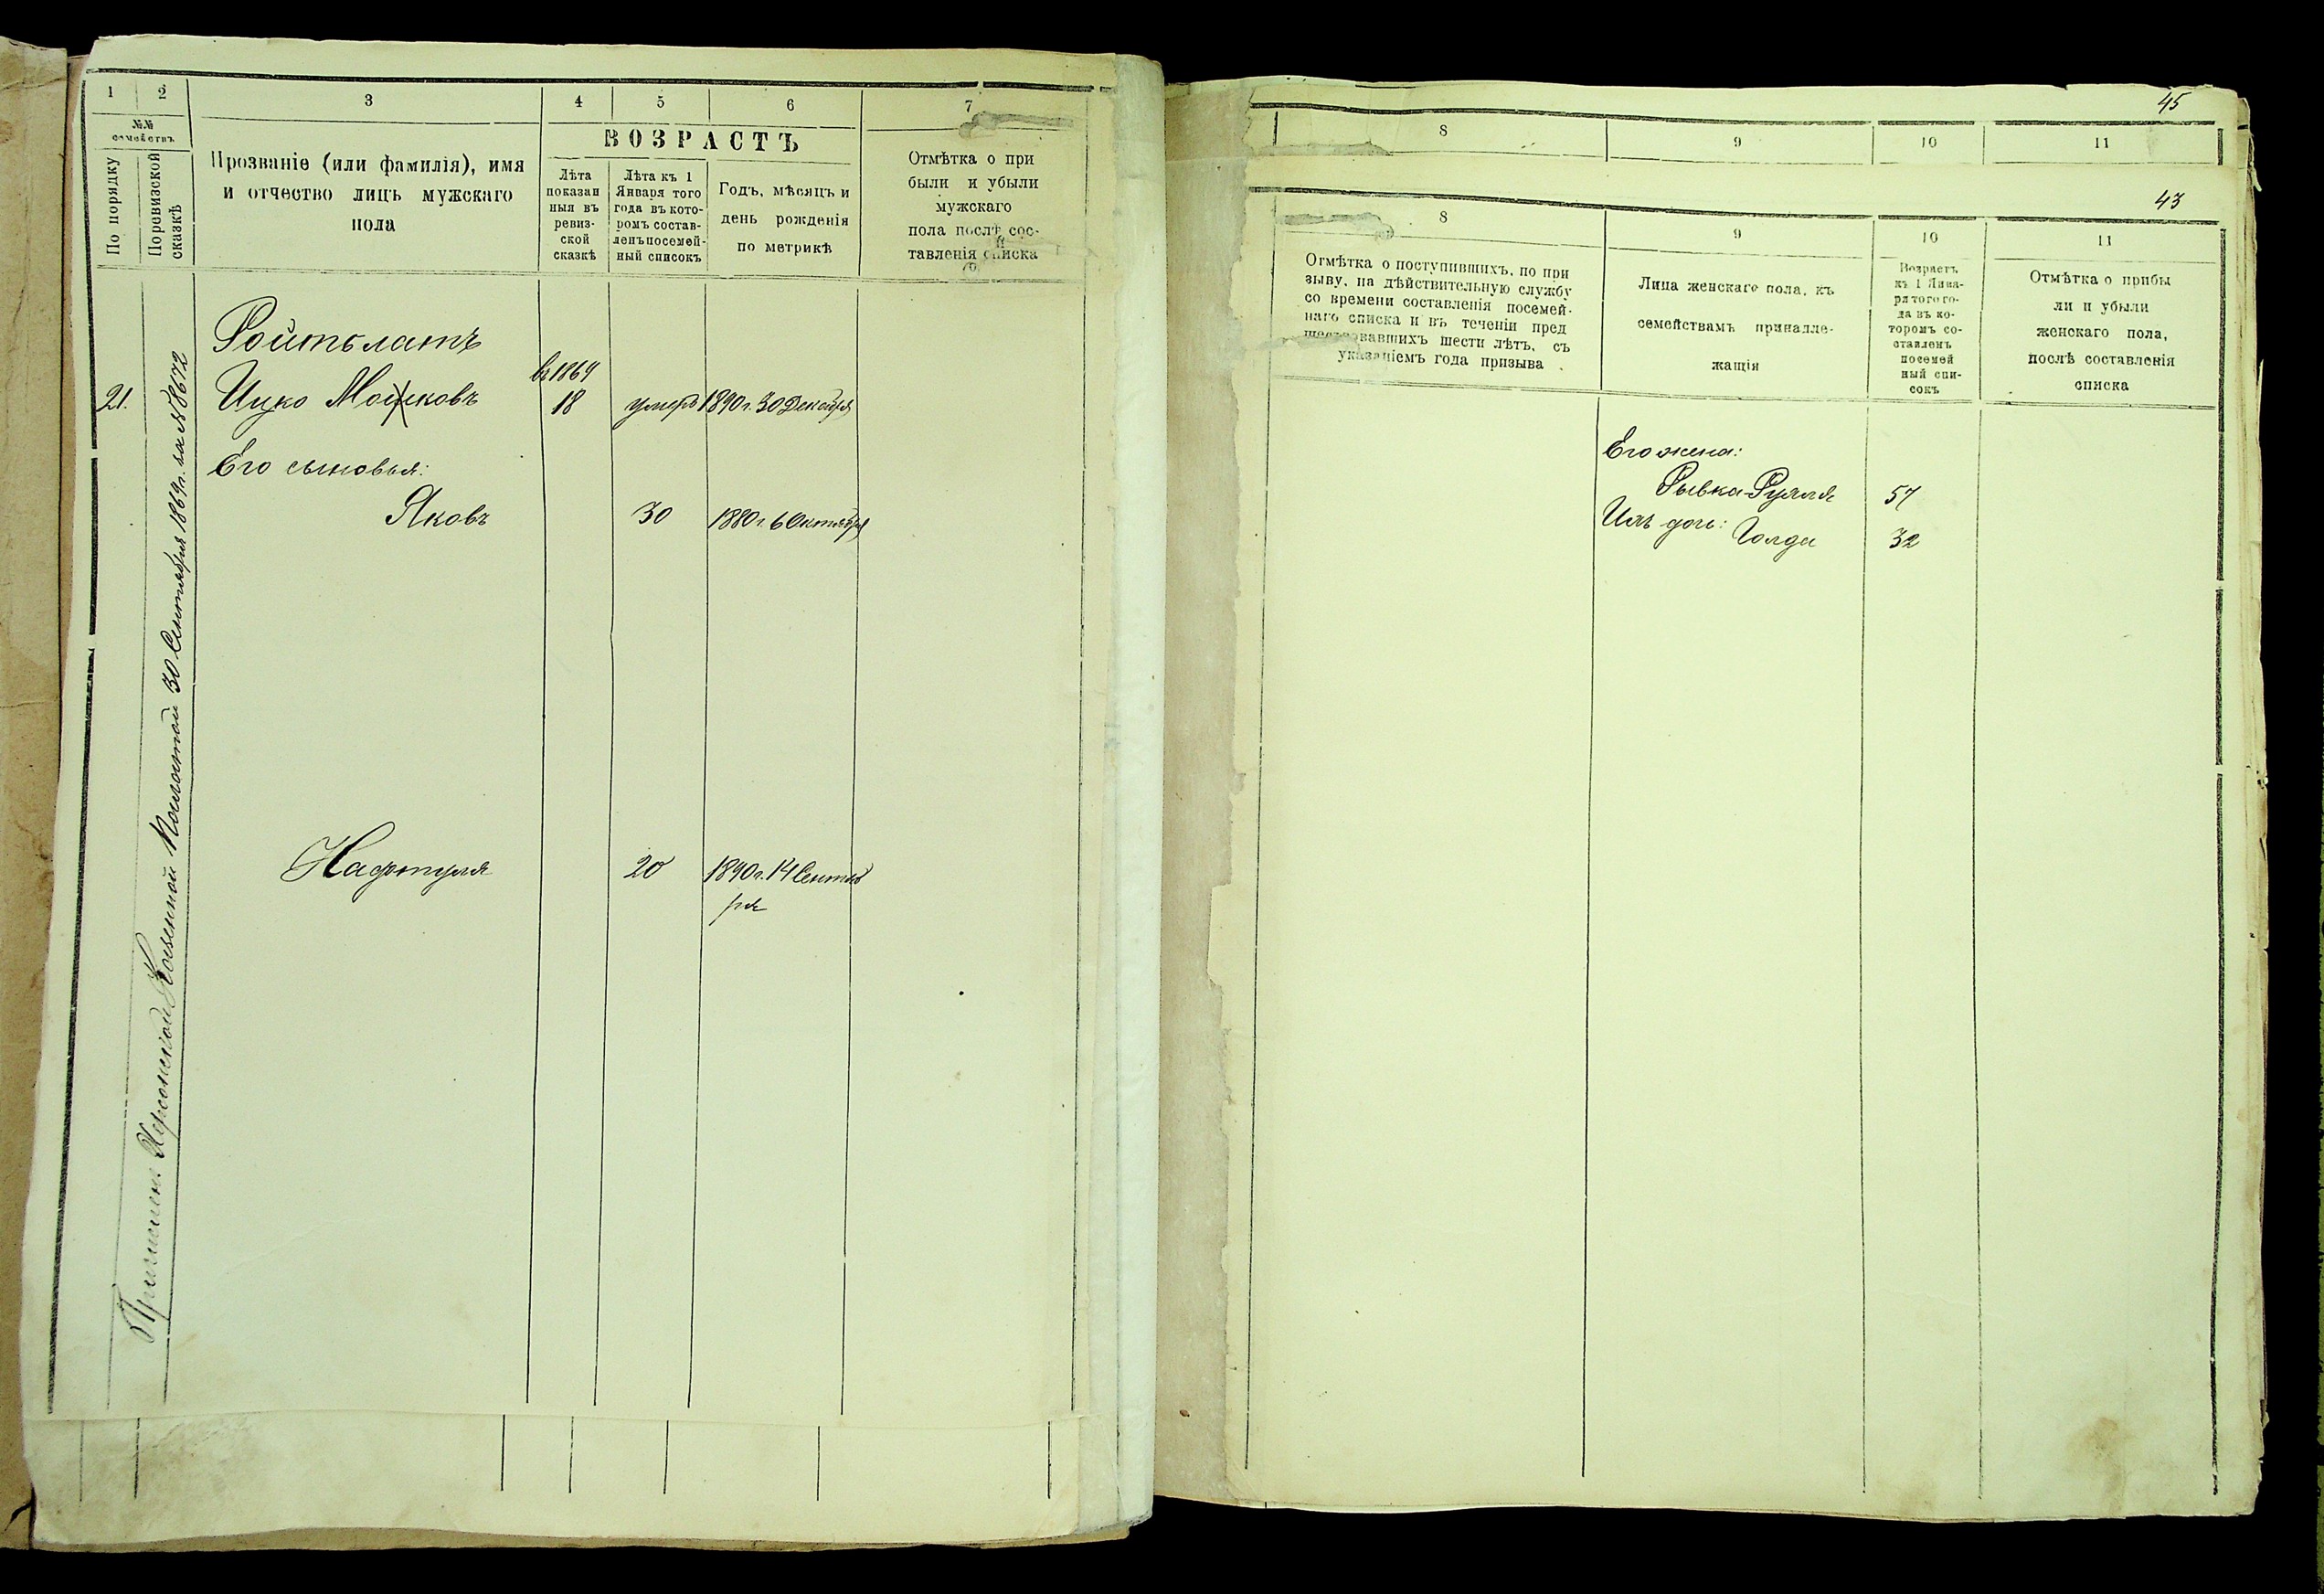 1 2 3 4 5 6 7
№№ семействъ
По порядку
По ревизской сказкѣ
Прозваніе (или фамилія), имя
и отчество лицъ мужскаго
пола
ВОЗРАСТЪ
Лѣта
показан
ныя въ
ревиз-
ской
сказкѣ
Лѣта къ 1
Января того
года въ кото-
ромъ состав-
ленъ посемей-
ный списокъ
Годъ, мѣсяцъ и
день рожденія
по метрикѣ
Отмѣтка о при
были и убыли
мужскаго
пола послѣ сос-
тавленія списка
Ройтблатъ
въ 1869
21. Ицко Мошковъ 18 умеръ 1890 г. 30 Декабря
Его сыновья:
Яковъ 30 1880 г. 6 Октября
Нафтуля 20 1890 г. 14 Сентяб
ря
Херсонской Казенной Палатой 30 Сентября 1869 г. за № 8672
45
8 9 10 11
43
8 9 10 11
Отмѣтка о поступившихъ, по при
зыву, на дѣйствительную службу
со времени составленія посемей-
наго списка и въ теченіи пред
шествовавшихъ шести лѣтъ, съ
указаніемъ года призыва
Лица женскаго пола, къ
семействамъ принадле-
жащія
Возрастъ
къ 1 Янва-
ря того го-
да въ ко-
торомъ со-
ставленъ
посемей
ный спи-
сокъ
Отмѣтка о прибы
ли и убыли
женскаго пола,
послѣ составленія
списка
Его жена:
Рывка-Рухля 57
Ихъ дочь: Голда 32